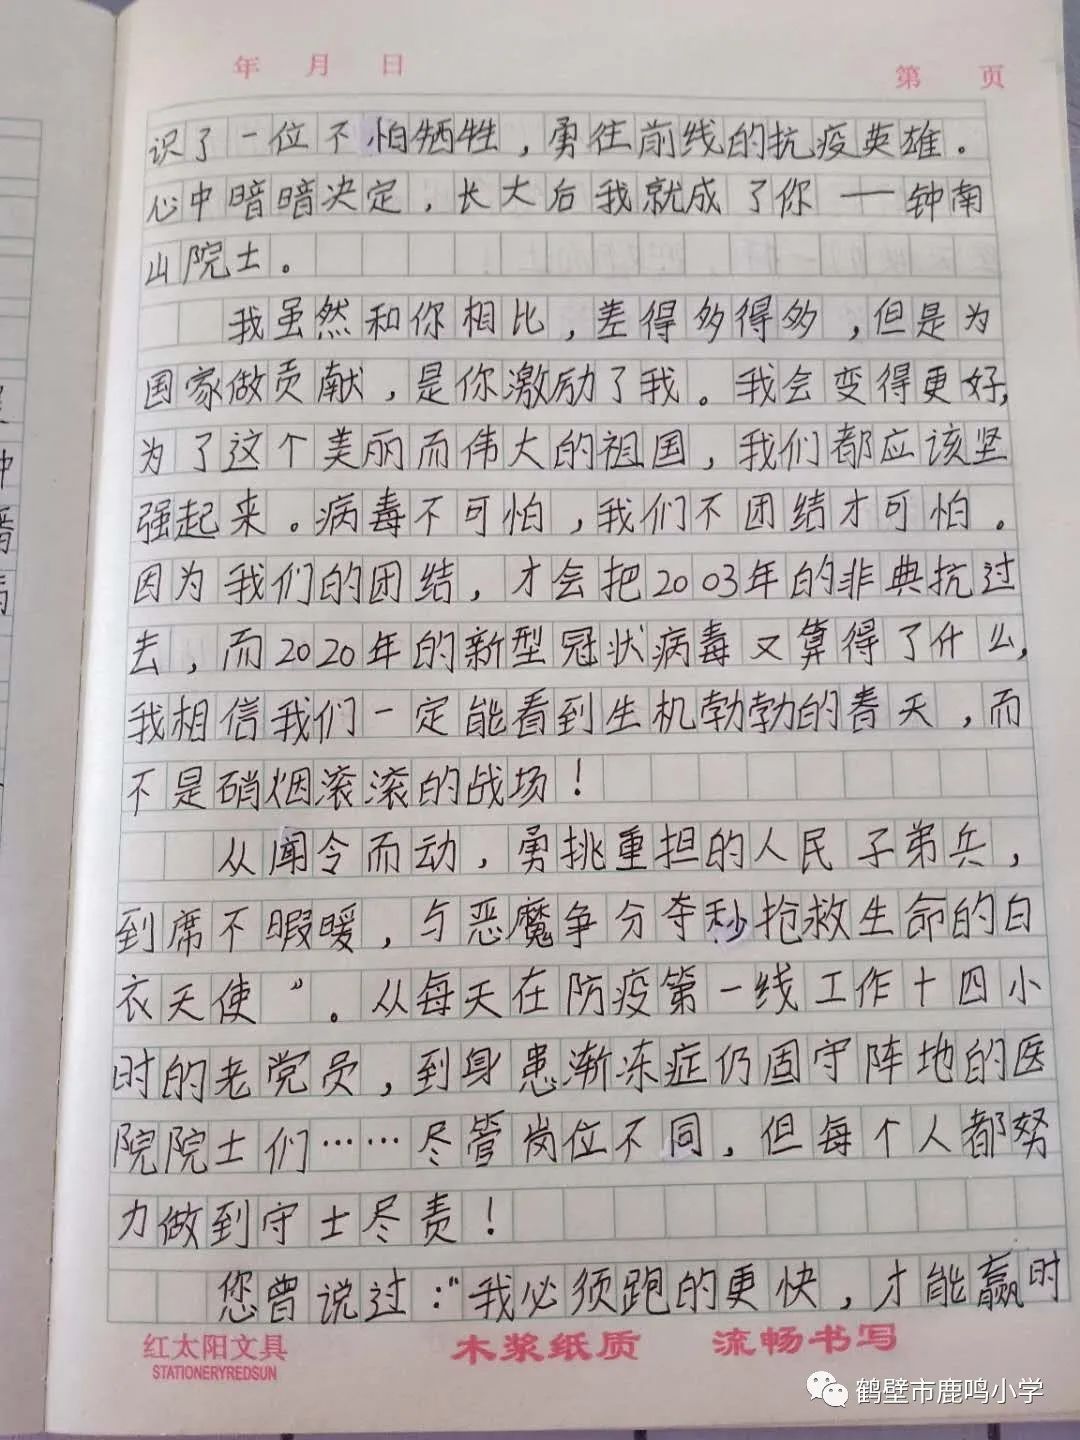 年 月 日
第 页
识了一位不怕牺牲，勇往前线的抗疫英雄。
心中暗暗决定，长大后我就成了你——钟南
山院士。
我虽然和你相比，差得多得多，但是为
国家做贡献，是你激励了我。我会变得更好，
为了这个美丽而伟大的祖国，我们都应该坚
强起来。病毒不可怕，我们不团结才可怕。
因为我们的团结，才会把2003年的非典抗过
去，而2020年的新型冠状病毒又算得了什么，
我相信我们一定能看到生机勃勃的春天，而
不是硝烟滚滚的战场！
从闻令而动，勇挑重担的人民子弟兵，
到席不暇暖，与恶魔争分夺秒抢救生命的白
衣天使”。从每天在防疫第一线工作十四小
时的老党员，到身患渐冻症仍固守阵地的医
院院士们……尽管岗位不同，但每个人都努
力做到守士尽责！
您曾说过：“我必须跑的更快，才能赢时
红太阳文具
STATIONERYREDSUN
木浆纸质 流畅书写
鹤壁市鹿鸣小学